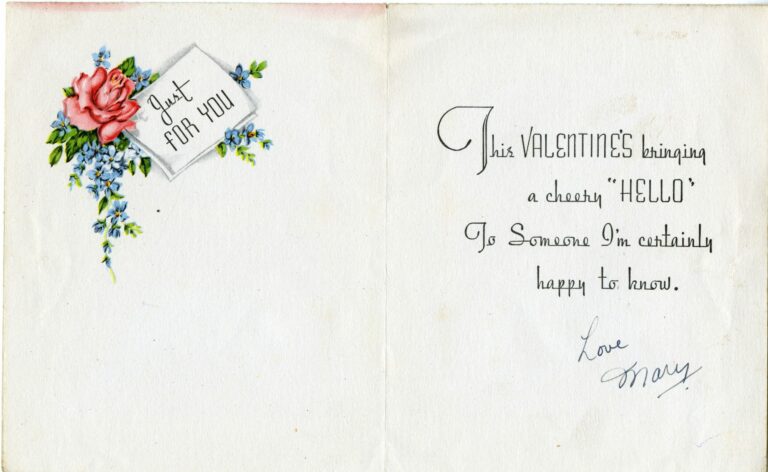 Just
FOR YOU
This VALENTINE'S bringing
a cheery "HELLO"
To Someone I'm certainly
happy to know.
Love
Mary